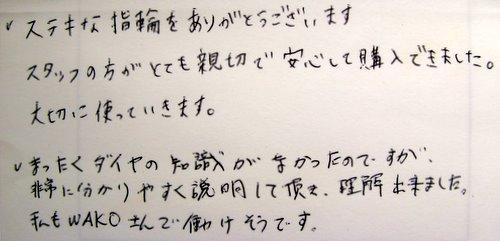 ✓ ステキな指輪をありがとうございます
スタッフの方がとても親切で安心して購入できました。
大切に使っていきます。
✓ まったくダイヤの知識がなかったのですが、
非常に分かりやすく説明して頂き、理解出来ました。
私もWAKOさんで働けそうです。